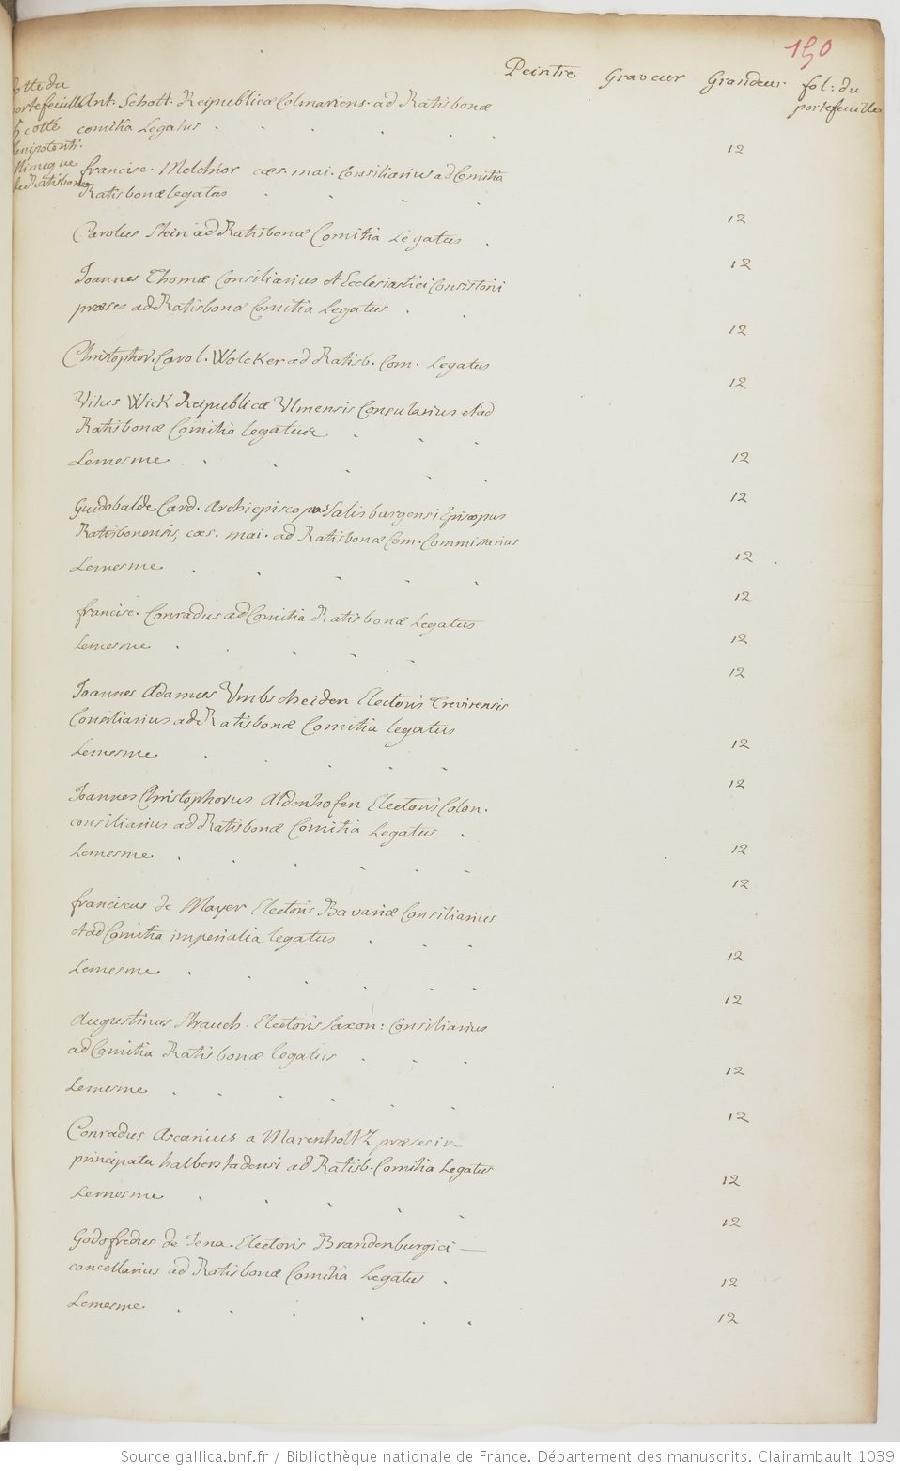 150
Peintre Graveur Grandeur fol: du
portefeuille
Cotte du
portefeuille
Ant. Schott. Reipublicæ Colmariens. ad Ratisbonæ
cotté
comitia Legatus 12
Nimegue
francisc. Melchior cæs. mai. Consiliarius ad Comitia
Ratisbonæ legatus 12
Carolus Stein ad Ratisbonæ Comitia Legatus 12
Joannes Thomæ Consiliarius et Ecclesiastici Consistorii
præses ad Ratisbonæ Comitia Legatus 12
Christophor. Carol. Wolcker ad Ratisb. Com. Legatus 12
Vitus Wick Reipublicæ Ulmensis Consularius et ad
Ratisbonæ Comitia legatus 12
Lemesme 12
Guidobalde Card. Archiepiscopus Salisburgensi Episcopus
Ratisbonensis, cæs. mai. ad Ratisbonæ Com. Commissarius 12
Lemesme 12
francisc. Conradus ad Comitia Ratisbonæ Legatus 12
Lemesme 12
Joannes Adamus Umbscheiden Electoris Trevirensis
Consiliarius ad Ratisbonæ Comitia legatus 12
Lemesme 12
Joannes Christophorus Aldenhofen Electoris Colon.
consiliarius ad Ratisbonæ Comitia Legatus 12
Lemesme 12
franciscus de Mayer Electoris Bavariæ Consiliarius
et ad Comitia imperialia legatus 12
Lemesme 12
Augustinus Strauch. Electoris Saxon: Consiliarius
ad Comitia Ratisbonæ legatus 12
Lemesme 12
Conradus Ascanius a Marenholtz præses in
principatu halberstadensi ad Ratisb. Comitia Legatus 12
Lemesme 12
Godofredus de Jena. Electoris Brandenburgici —
cancellarius ad Ratisbonæ Comitia Legatus 12
Lemesme 12
Source gallica.bnf.fr / Bibliothèque nationale de France. Département des manuscrits. Clairambault 1039